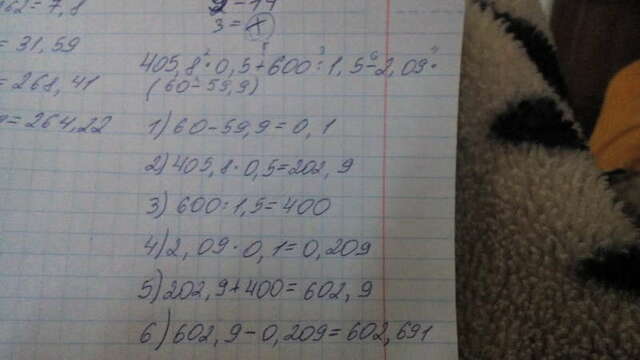 162=7,8
=31,59
=268,41
=264,22
9-14
3=
405,8·0,5+600:1,5-2,09·
(60-59,9)
1) 60-59,9=0,1
2) 405,8·0,5=202,9
3) 600:1,5=400
4) 2,09·0,1=0,209
5) 202,9+400=602,9
6) 602,9-0,209=602,691